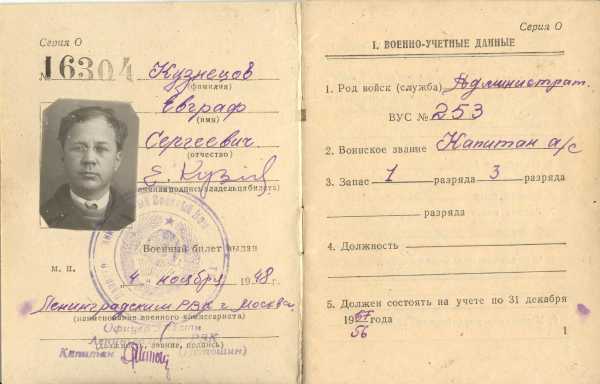 Серия О
№ 16304
Кузнецов
(фамилия)
Евграф
(имя)
Сергеевич
(отчество)
Е. Кузн
(личная подпись владельца билета)
Военный билет выдан
М. П. „4 ноября 1948 г.
Ленинградским РВК г. Москва
(наименование военного комиссариата)
РВК
Капитан
(должность, звание, подпись)
Серия О
I. ВОЕННО-УЧЕТНЫЕ ДАННЫЕ
1. Род войск (служба) Администрат.
ВУС № 253
2. Воинское звание Капитан а/с
3. Запас 1 разряда 3 разряда
разряда
4. Должность
5. Должен состоять на учете по 31 декабря
1957 года
56
1